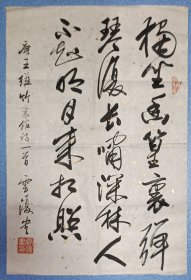 独坐幽篁裏彈
琴復長嘯深林人
不知明月來相照
唐王維竹里館詩一首